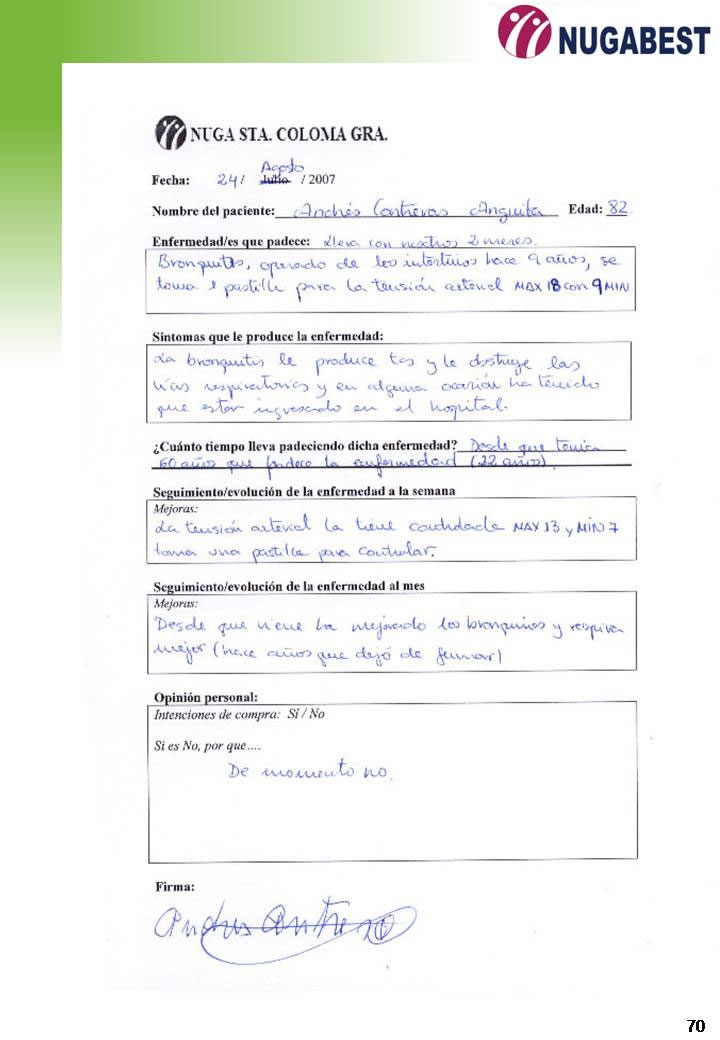 NUGABEST
NUGA STA. COLOMA GRA.
Agosto
Fecha: 24 / Julio / 2007
Nombre del paciente: Andrés Contreras Anguita Edad: 82.
Enfermedad/es que padece: Lleva con nosotros 2 meses.
Bronquitis, operado de los intestinos hace 9 años, se
toma 1 pastilla para la tensión arterial MAX 18 con 9 MIN
Síntomas que le produce la enfermedad:
La bronquitis le produce tos y le obstruye las
vías respiratorias y en alguna ocasión ha tenido
que estar ingresado en el hospital.
¿Cuánto tiempo lleva padeciendo dicha enfermedad? Desde que tenía
60 años que padece la enfermedad (22 años).
Seguimiento/evolución de la enfermedad a la semana
Mejoras:
La tensión arterial la tiene MAX 13 y MIN 7
toma una pastilla para controlar.
Seguimiento/evolución de la enfermedad al mes
Mejoras:
Desde que viene ha mejorado los bronquios y respira
mejor (hace años que dejó de fumar)
Opinión personal:
Intenciones de compra: Sí / No
Si es No, por que....
De momento no.
Firma:
70